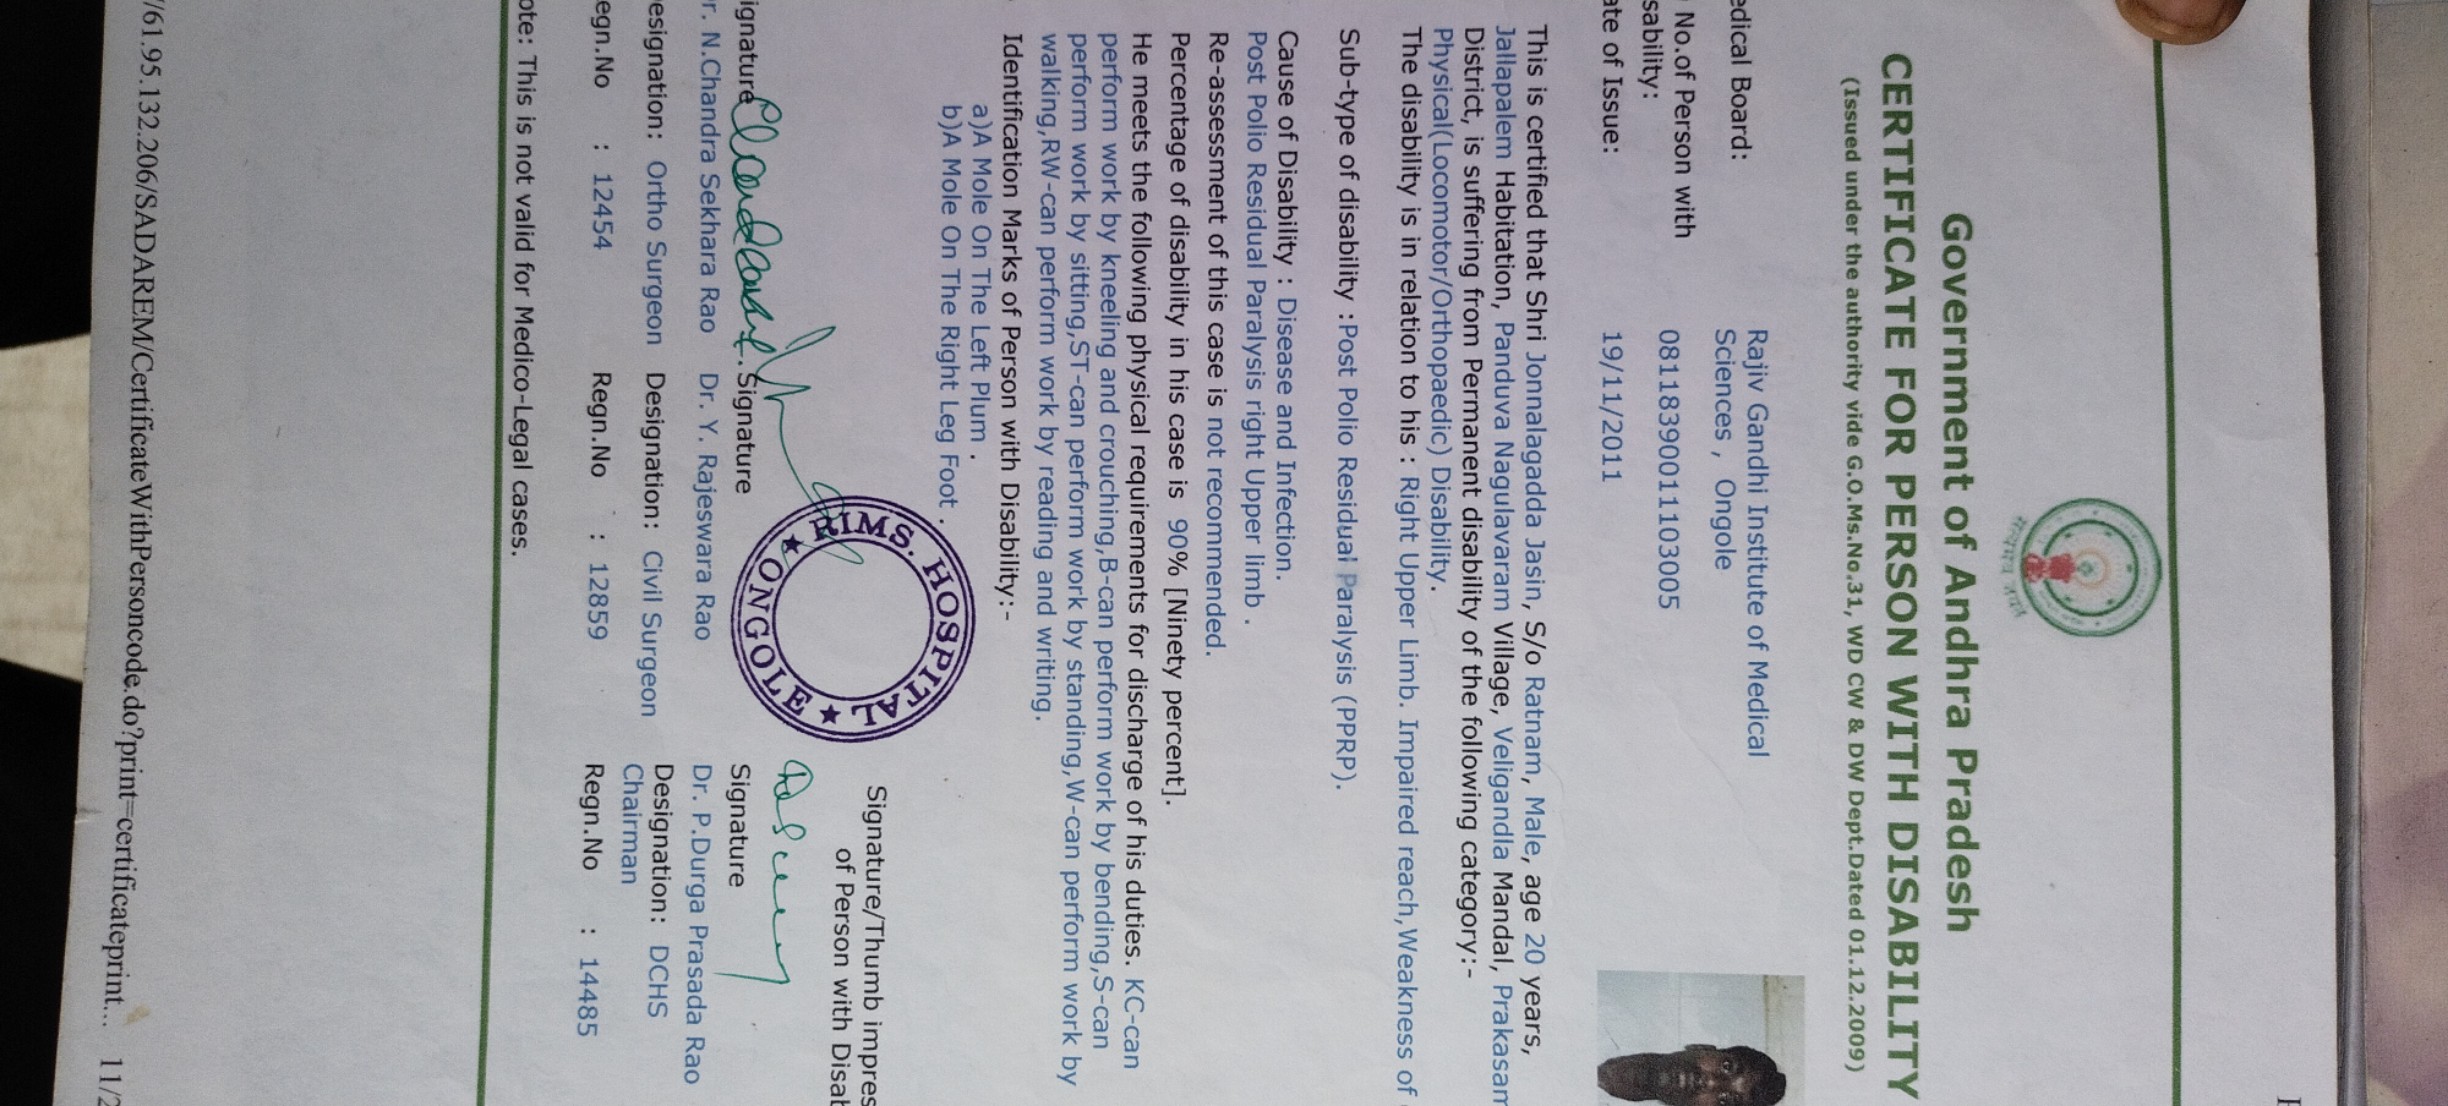 Government of Andhra Pradesh
CERTIFICATE FOR PERSON WITH DISABILITY
(Issued under the authority vide G.O.Ms.No.31, WD CW & DW Dept.Dated 01.12.2009)
edical Board: Rajiv Gandhi Institute of Medical
Sciences , Ongole
No.of Person with 08118390011103005
sability:
ate of Issue: 19/11/2011
This is certified that Shri Jonnalagadda Jasin, S/o Ratnam, Male, age 20 years,
Jallapalem Habitation, Panduva Nagulavaram Village, Veligandla Mandal, Prakasam
District, is suffering from Permanent disability of the following category:-
Physical(Locomotor/Orthopaedic) Disability.
The disability is in relation to his : Right Upper Limb. Impaired reach,Weakness of
Sub-type of disability :Post Polio Residual Paralysis (PPRP).
Cause of Disability : Disease and Infection.
Post Polio Residual Paralysis right Upper limb .
Re-assessment of this case is not recommended.
Percentage of disability in his case is 90% [Ninety percent].
He meets the following physical requirements for discharge of his duties. KC-can
perform work by kneeling and crouching,B-can perform work by bending,S-can
perform work by sitting,ST-can perform work by standing,W-can perform work by
walking,RW-can perform work by reading and writing.
Identification Marks of Person with Disability:-
a)A Mole On The Left Plum .
b)A Mole On The Right Leg Foot .
RIMS. HOSPITAL
ONGOLE
Signature/Thumb impres
of Person with Disab
ignature Signature Signature
r. N.Chandra Sekhara Rao Dr. Y. Rajeswara Rao Dr. P.Durga Prasada Rao
esignation: Ortho Surgeon Designation: Civil Surgeon Designation: DCHS
Chairman
egn.No : 12454 Regn.No : 12859 Regn.No : 14485
ote: This is not valid for Medico-Legal cases.
/61.95.132.206/SADAREM/CertificateWithPersoncode.do?print=certificateprint... 11/2